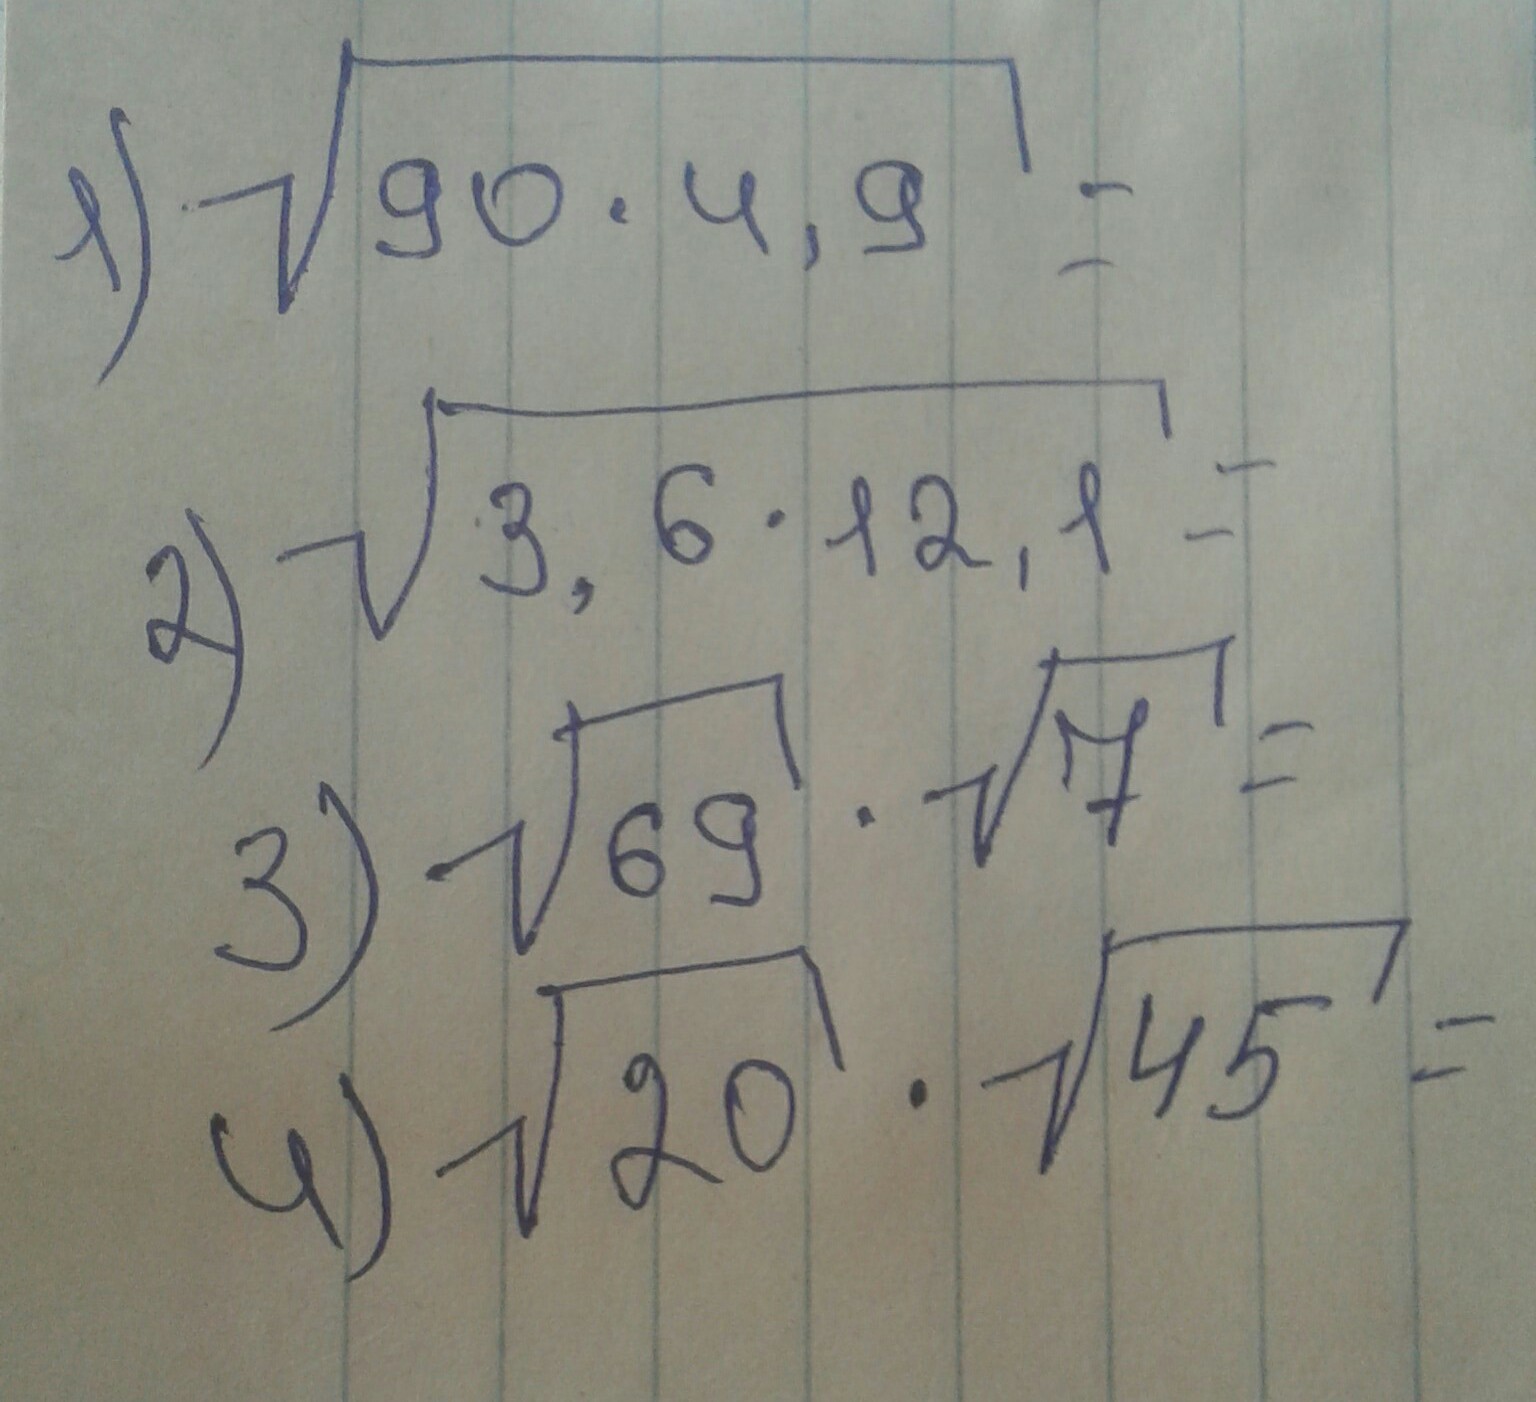 1) √90·4,9 =
2) √3,6·12,1 =
3) √69 · √7 =
4) √20 · √45 =